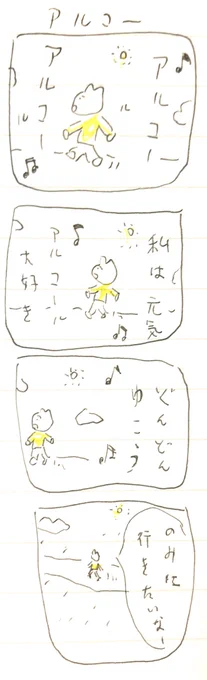 アルコー
アルコー
アルコール
私は元気
アルコール
大好き
どんどん
ゆこう
のみに
行きたいなー